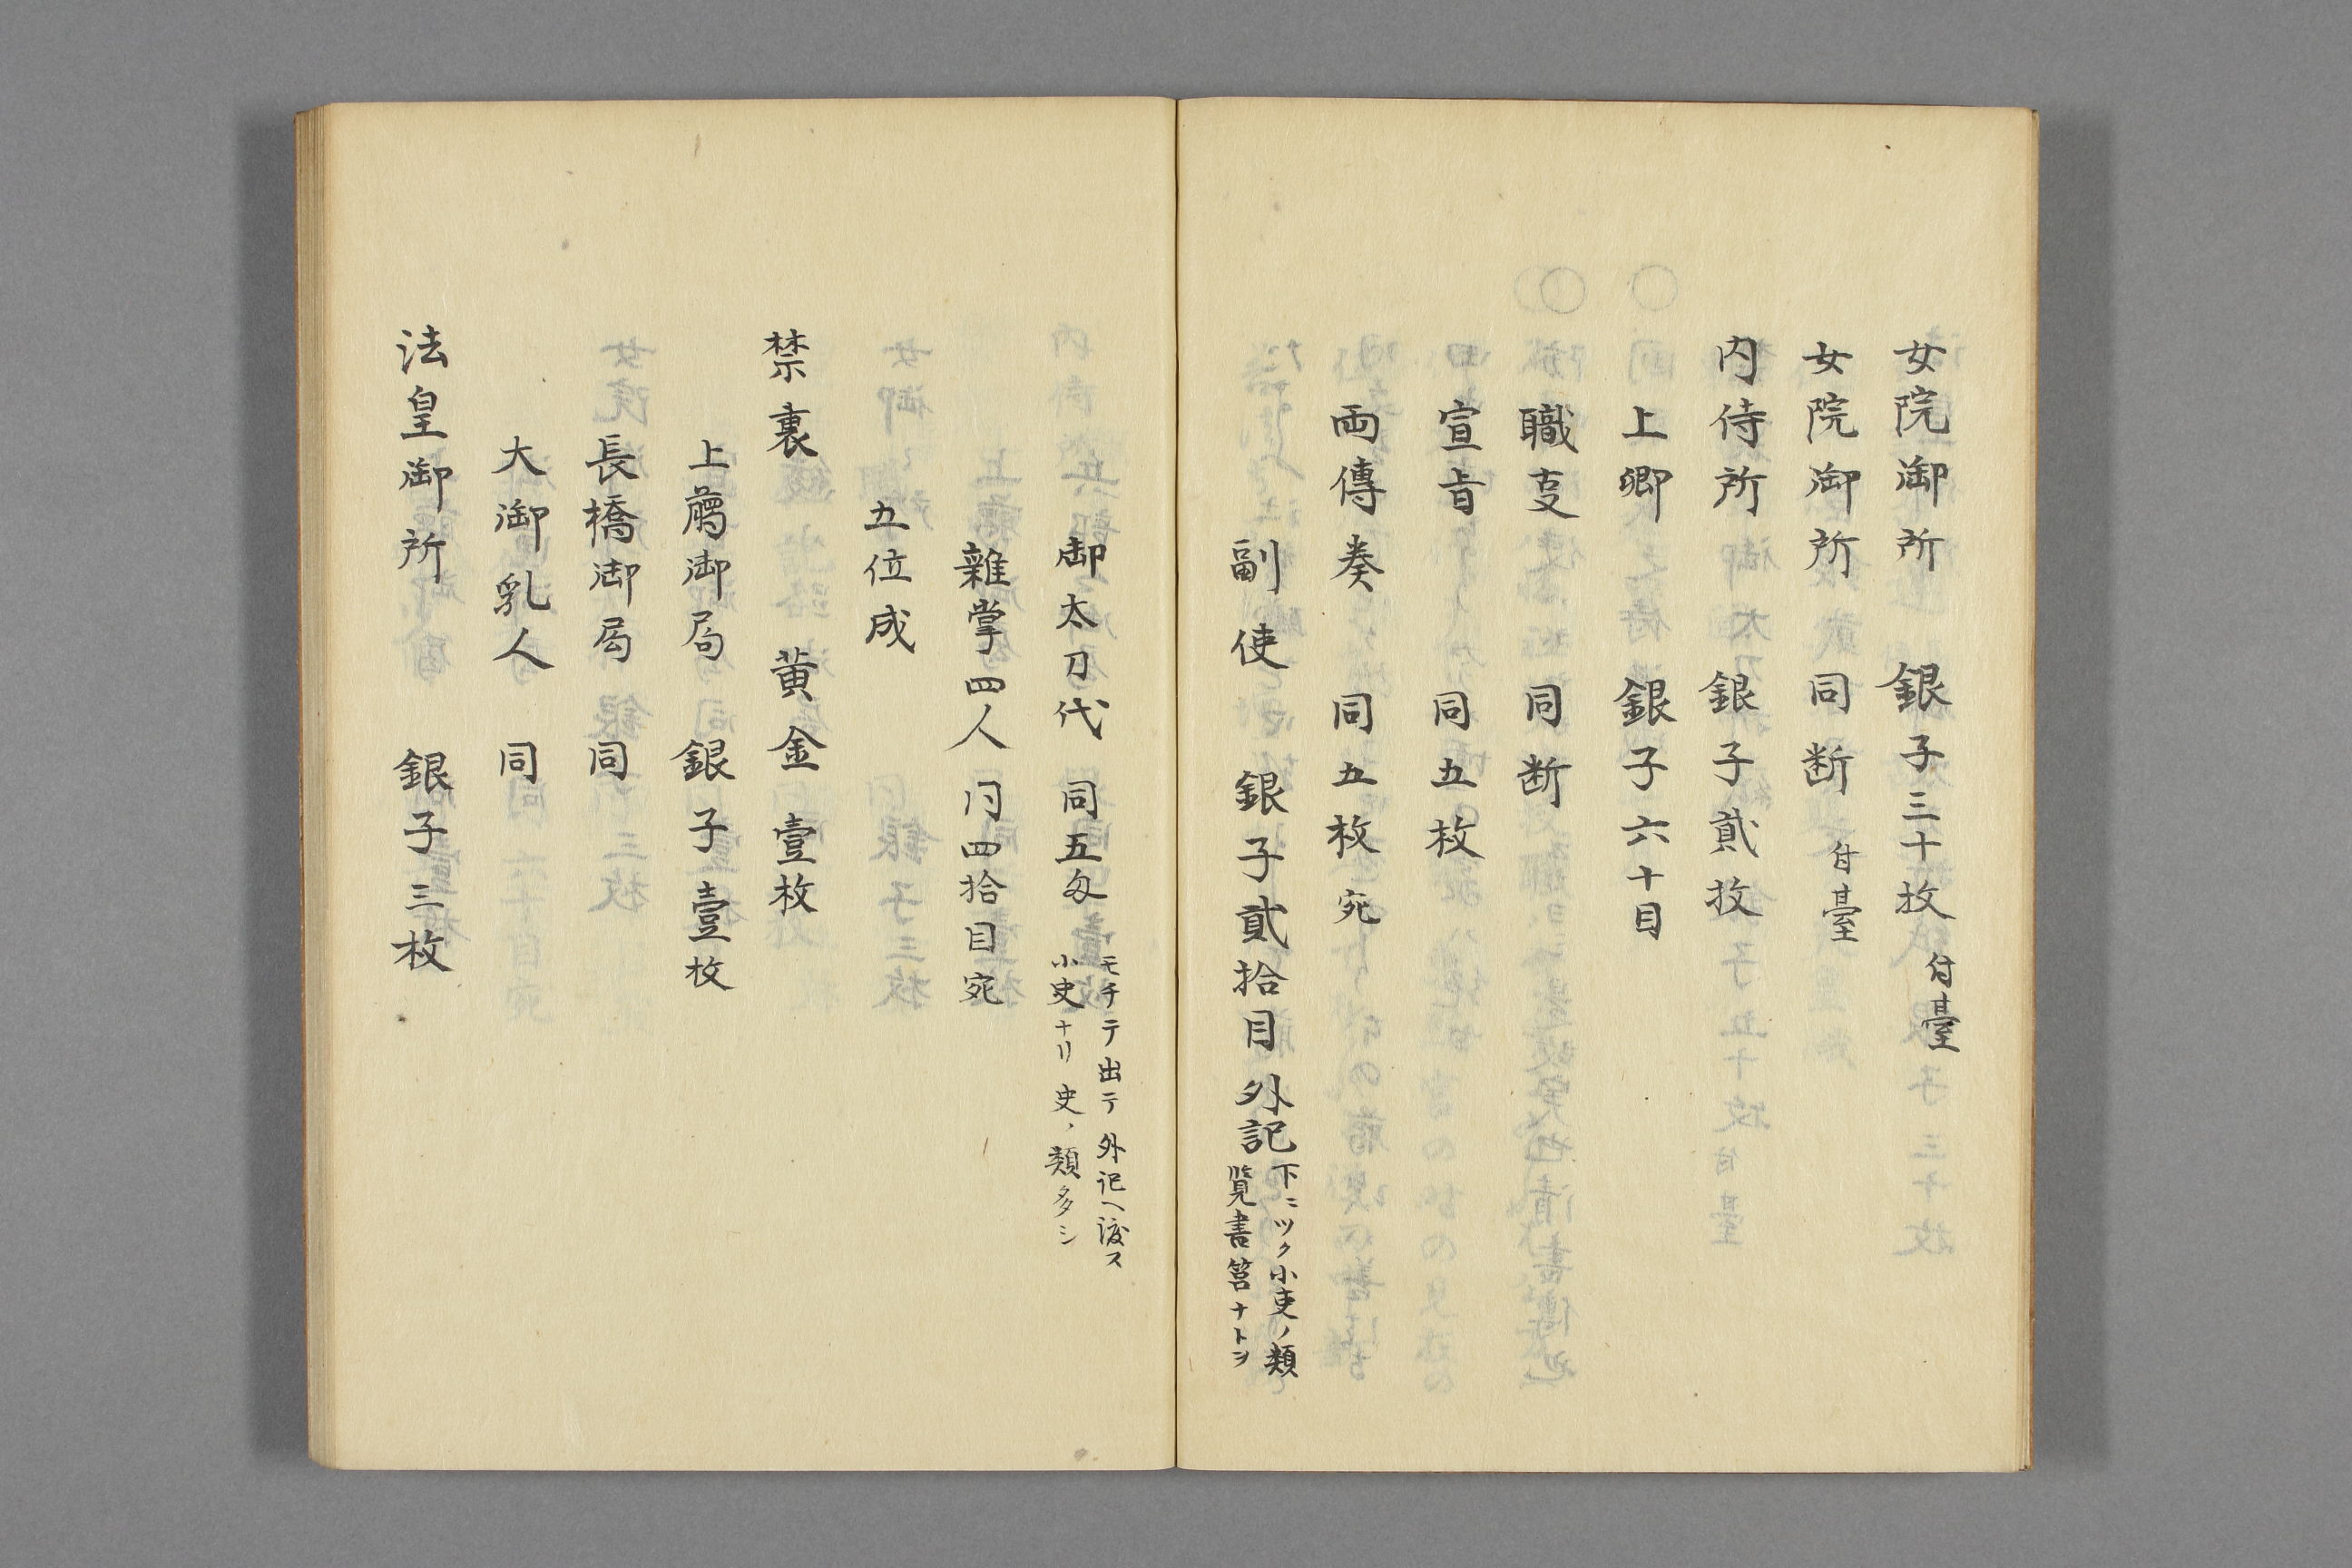 女院御所　銀子三十枚　付臺
女院御所　同断　付臺
内侍所　銀子貳枚
上卿　銀子六十目
職叓　同断
宣旨　同五枚
両傳奏　同五枚宛
副使　銀子貳拾目　外記
下ニツク小吏ノ類
覧書筥ナトヲ
御太刀代　同五匁
モチテ出テ外記ヘ渡ス
小吏ナリ史ノ類多シ
雜掌四人　同四拾目宛
五位成
禁裏　黄金壹枚
上﨟御局　銀子壹枚
長橋御局　同
大御乳人　同
法皇御所　銀子三枚